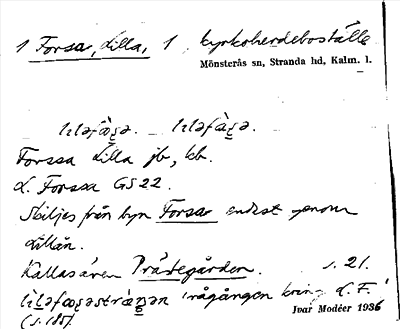 1 Forsa, Lilla, 1 kyrkoherdeboställe
Mönsterås sn, Stranda hd, Kalm. l.
Forssa Lilla jb, kb.
L. Forssa GS 22.
Skiljes från byn Forsa endast genom
Lillån.
Kallas även Prästegården. s. 21.
rågången kring L. F.
(s. 185).
Ivar Modéer 1936